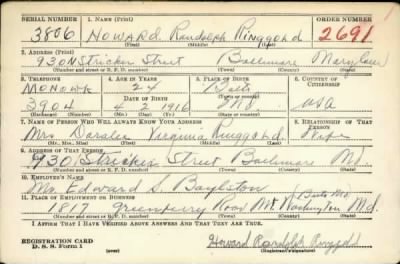 SERIAL NUMBER 1. NAME (Print) ORDER NUMBER
3806 HOWARD Randolph Ringgold 2691
(First) (Middle) (Last)
2. ADDRESS (Print)
930 N Stricker Street Baltimore Maryland
(Number and street or R. F. D. number) (Town) (County) (State)
3. TELEPHONE 4. AGE IN YEARS 5. PLACE OF BIRTH 6. COUNTRY OF CITIZENSHIP
24 Balto
DATE OF BIRTH
3904 4 2 1916 Md USA
(Exchange) (Number) (Mo.) (Day) (Yr.) (Town or county) (State or country)
7. NAME OF PERSON WHO WILL ALWAYS KNOW YOUR ADDRESS 8. RELATIONSHIP OF THAT PERSON
Mrs Doralee Virginia Ringgold Wife
(Mr., Mrs., Miss) (First) (Middle) (Last)
9. ADDRESS OF THAT PERSON
930 Stricker Street Baltimore Md.
(Number and street or R. F. D. number) (Town) (County) (State)
10. EMPLOYER'S NAME
Mr. Edward S. Boylston
11. PLACE OF EMPLOYMENT OR BUSINESS
1817 Greenberry Road Mt Washington Md.
(Number and street or R. F. D. number) (Town) (County) (State)
I AFFIRM THAT I HAVE VERIFIED ABOVE ANSWERS AND THAT THEY ARE TRUE.
REGISTRATION CARD
D. S. S. Form 1 Howard Randolph Ringgold